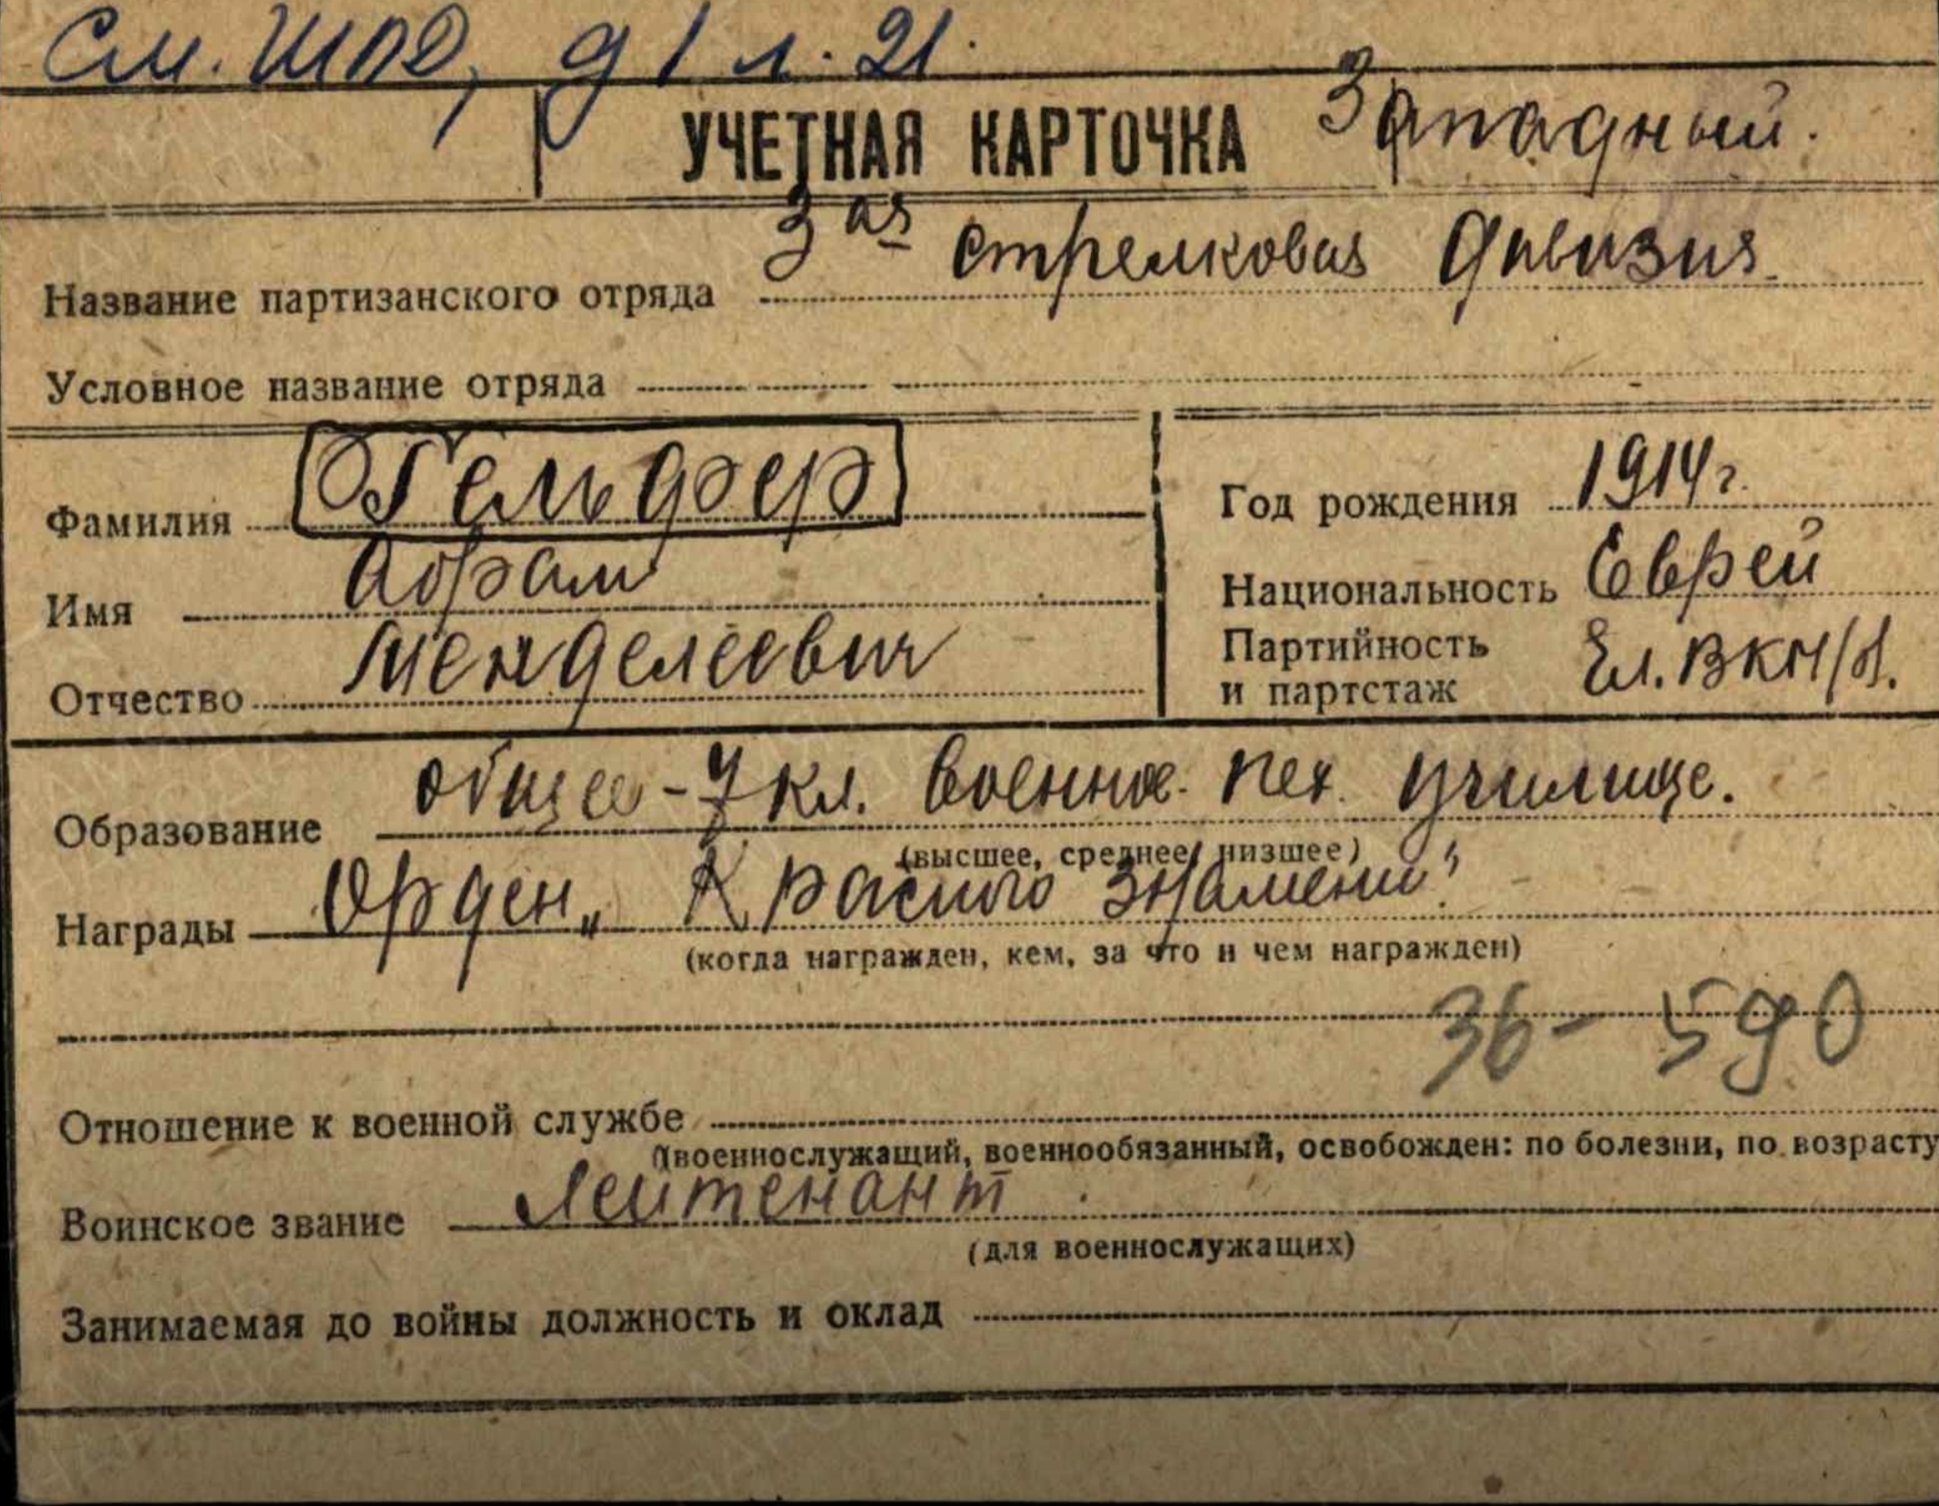 См. ШПД, д 1 л. 21.
УЧЕТНАЯ КАРТОЧКА Западный.
Название партизанского отряда 3ая стрелковая дивизия.
Условное название отряда
Фамилия Гельфер
Год рождения 1914 г.
Имя Абрам
Национальность Еврей
Отчество Менделеевич
Партийность и партстаж Чл. ВКП/б/.
Образование общее - 7 кл. военное. пех. училище.
(высшее, среднее, низшее)
Награды Орден „Красного Знамени“.
(когда награжден, кем, за что и чем награжден)
36 - 590
Отношение к военной службе
(военнослужащий, военнообязанный, освобожден: по болезни, по возрасту
Воинское звание Лейтенант
(для военнослужащих)
Занимаемая до войны должность и оклад